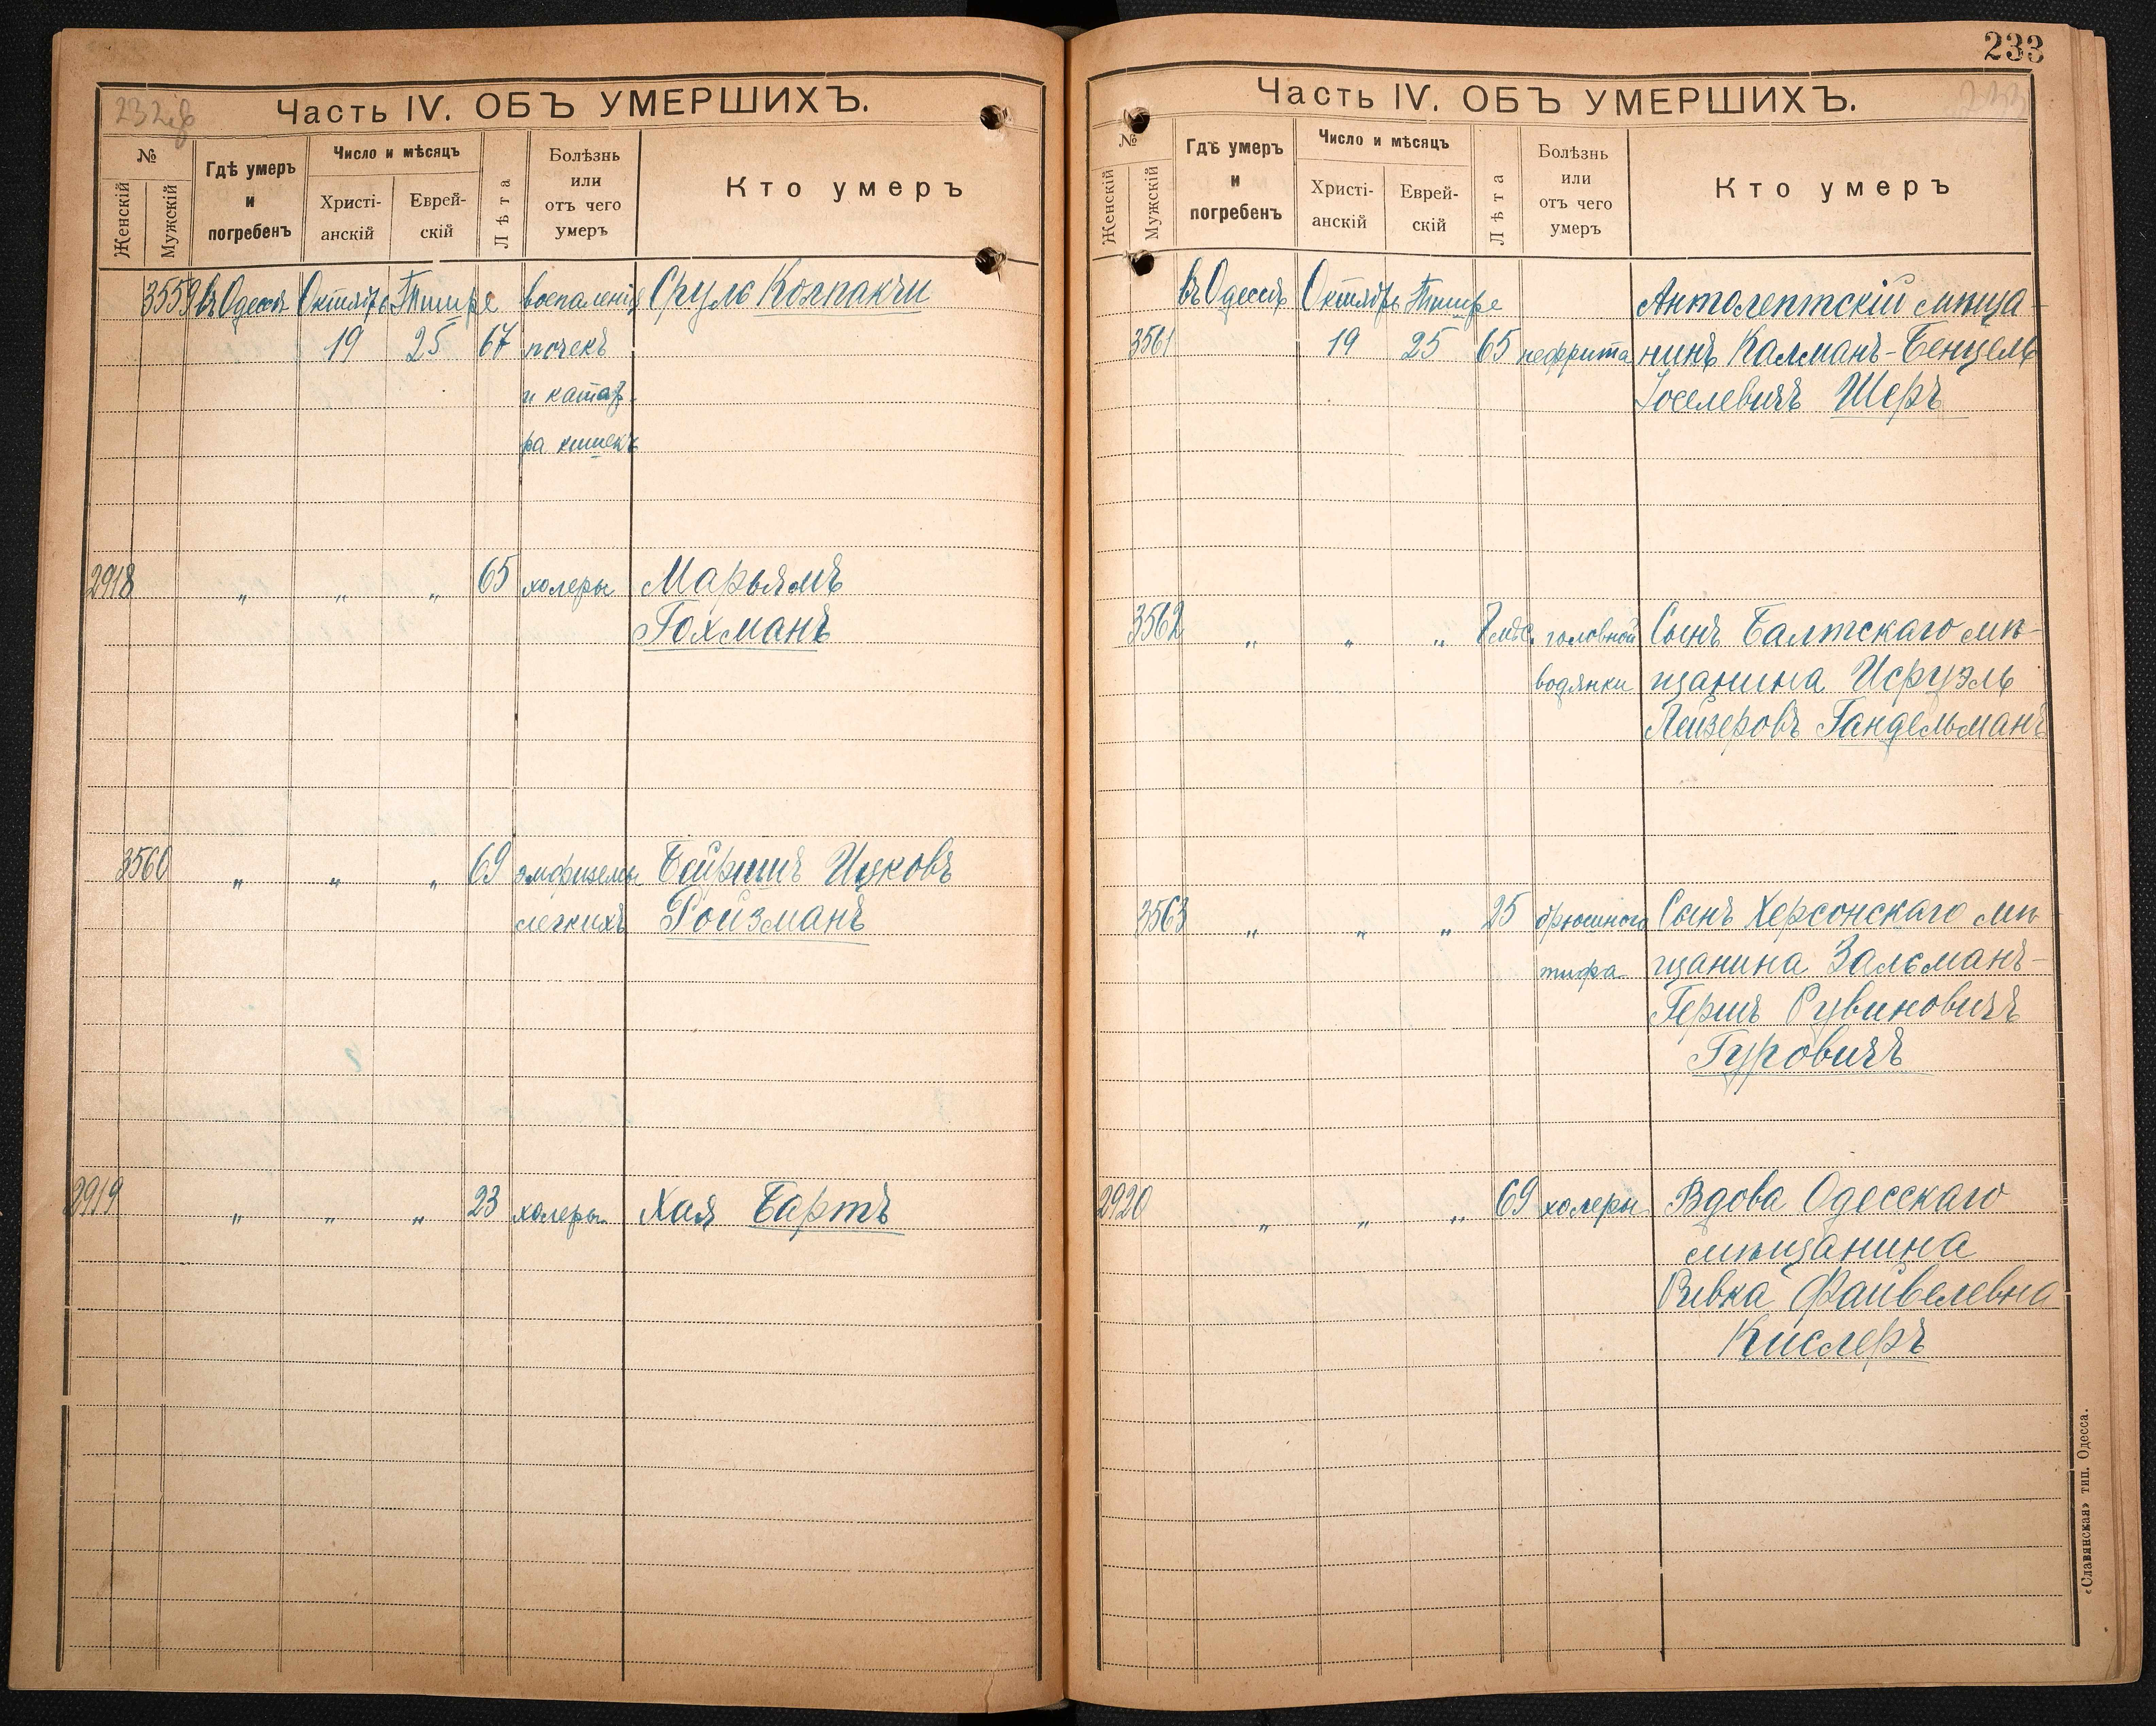 232об
Часть IV. ОБЪ УМЕРШИХЪ.
№
Женскій
Мужскій
Гдѣ умеръ
и
погребенъ
Число и мѣсяцъ
Христі-
анскій
Еврей-
скій
Лѣта
Болѣзнь
или
отъ чего
умеръ
Кто умеръ
3559 въ Одессѣ Октября Тишре воспаленія Сруль Колпакчи
19 25 67 почекъ
и катар-
ра кишекъ
2918 „ „ „ 65 холеры Марьямъ
Гохманъ
3560 „ „ „ 69 эмфиземы Бейришъ Ицковъ
легкихъ Ройзманъ
2919 „ „ „ 23 холеры Хая Бартъ
233
233
Часть IV. ОБЪ УМЕРШИХЪ.
№
Женскій
Мужскій
Гдѣ умеръ
и
погребенъ
Число и мѣсяцъ
Христі-
анскій
Еврей-
скій
Лѣта
Болѣзнь
или
отъ чего
умеръ
Кто умеръ
въ Одессѣ Октября Тишре Антолептскій мѣща-
3561 19 25 65 нефрита нинъ Калманъ-Бенцель
Іоселевичъ Шеръ
3562 „ „ „ мѣс. головной Сынъ Балтскаго мѣ-
водянки щанина Исруэль
Лейзеровъ Гандельманъ
3563 „ „ „ 25 брюшного Сынъ Херсонскаго мѣ-
тифа щанина Зальманъ-
Гершъ Рувиновичъ
Гуровичъ
2920 „ „ „ 69 холеры Вдова Одесскаго
мѣщанина
Ривка Файвелевна
Кислеръ
«Славянская» тип. Одесса.